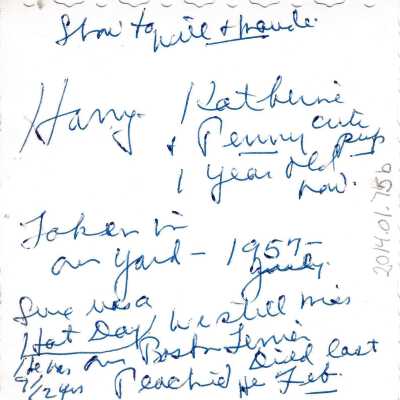 Show to + 
Harry Katherine
+ Penny cute pup
1 year old now.
Taken in
our yard - 1957-
Sure was a
Hot Day, We still miss
our Boston Terrier
He was 9 1/2 yrs
Peachie Died last
He Feb.
2014.01.756